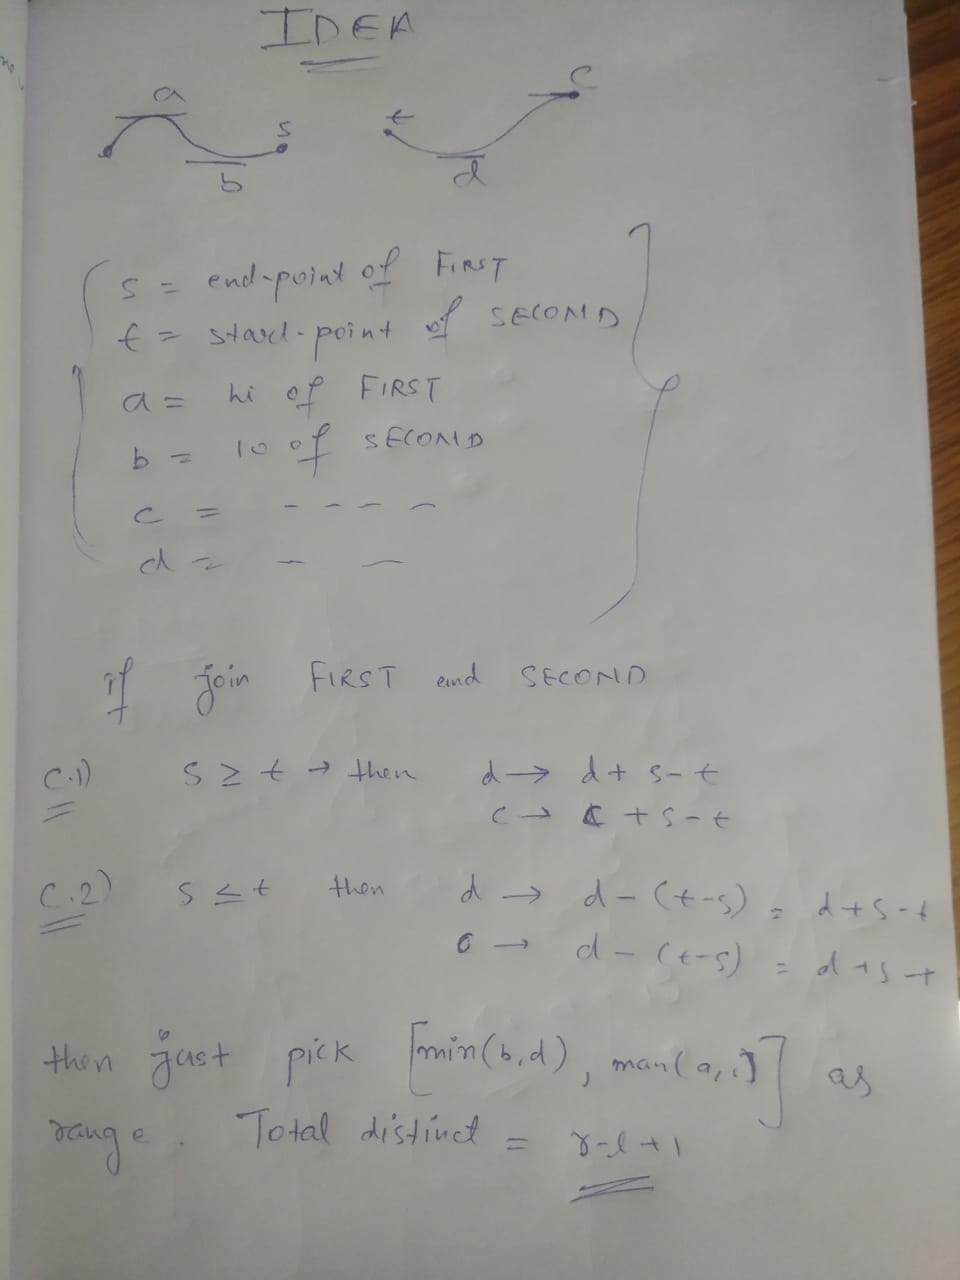 IDEA
a
s
b
t
c
d
s = end-point of FIRST
t = start-point of SECOND
a = hi of FIRST
b = lo of SECOND
c = - - - -
d = - -
if join FIRST and SECOND
C.1) s ≥ t → then d → d + s - t
c → c + s - t
C.2) s ≤ t then d → d - (t-s) = d + s - t
c → d - (t-s) = d + s - t
then just pick [min(b,d), max(a,c)] as
range. Total distinct = r-l+1